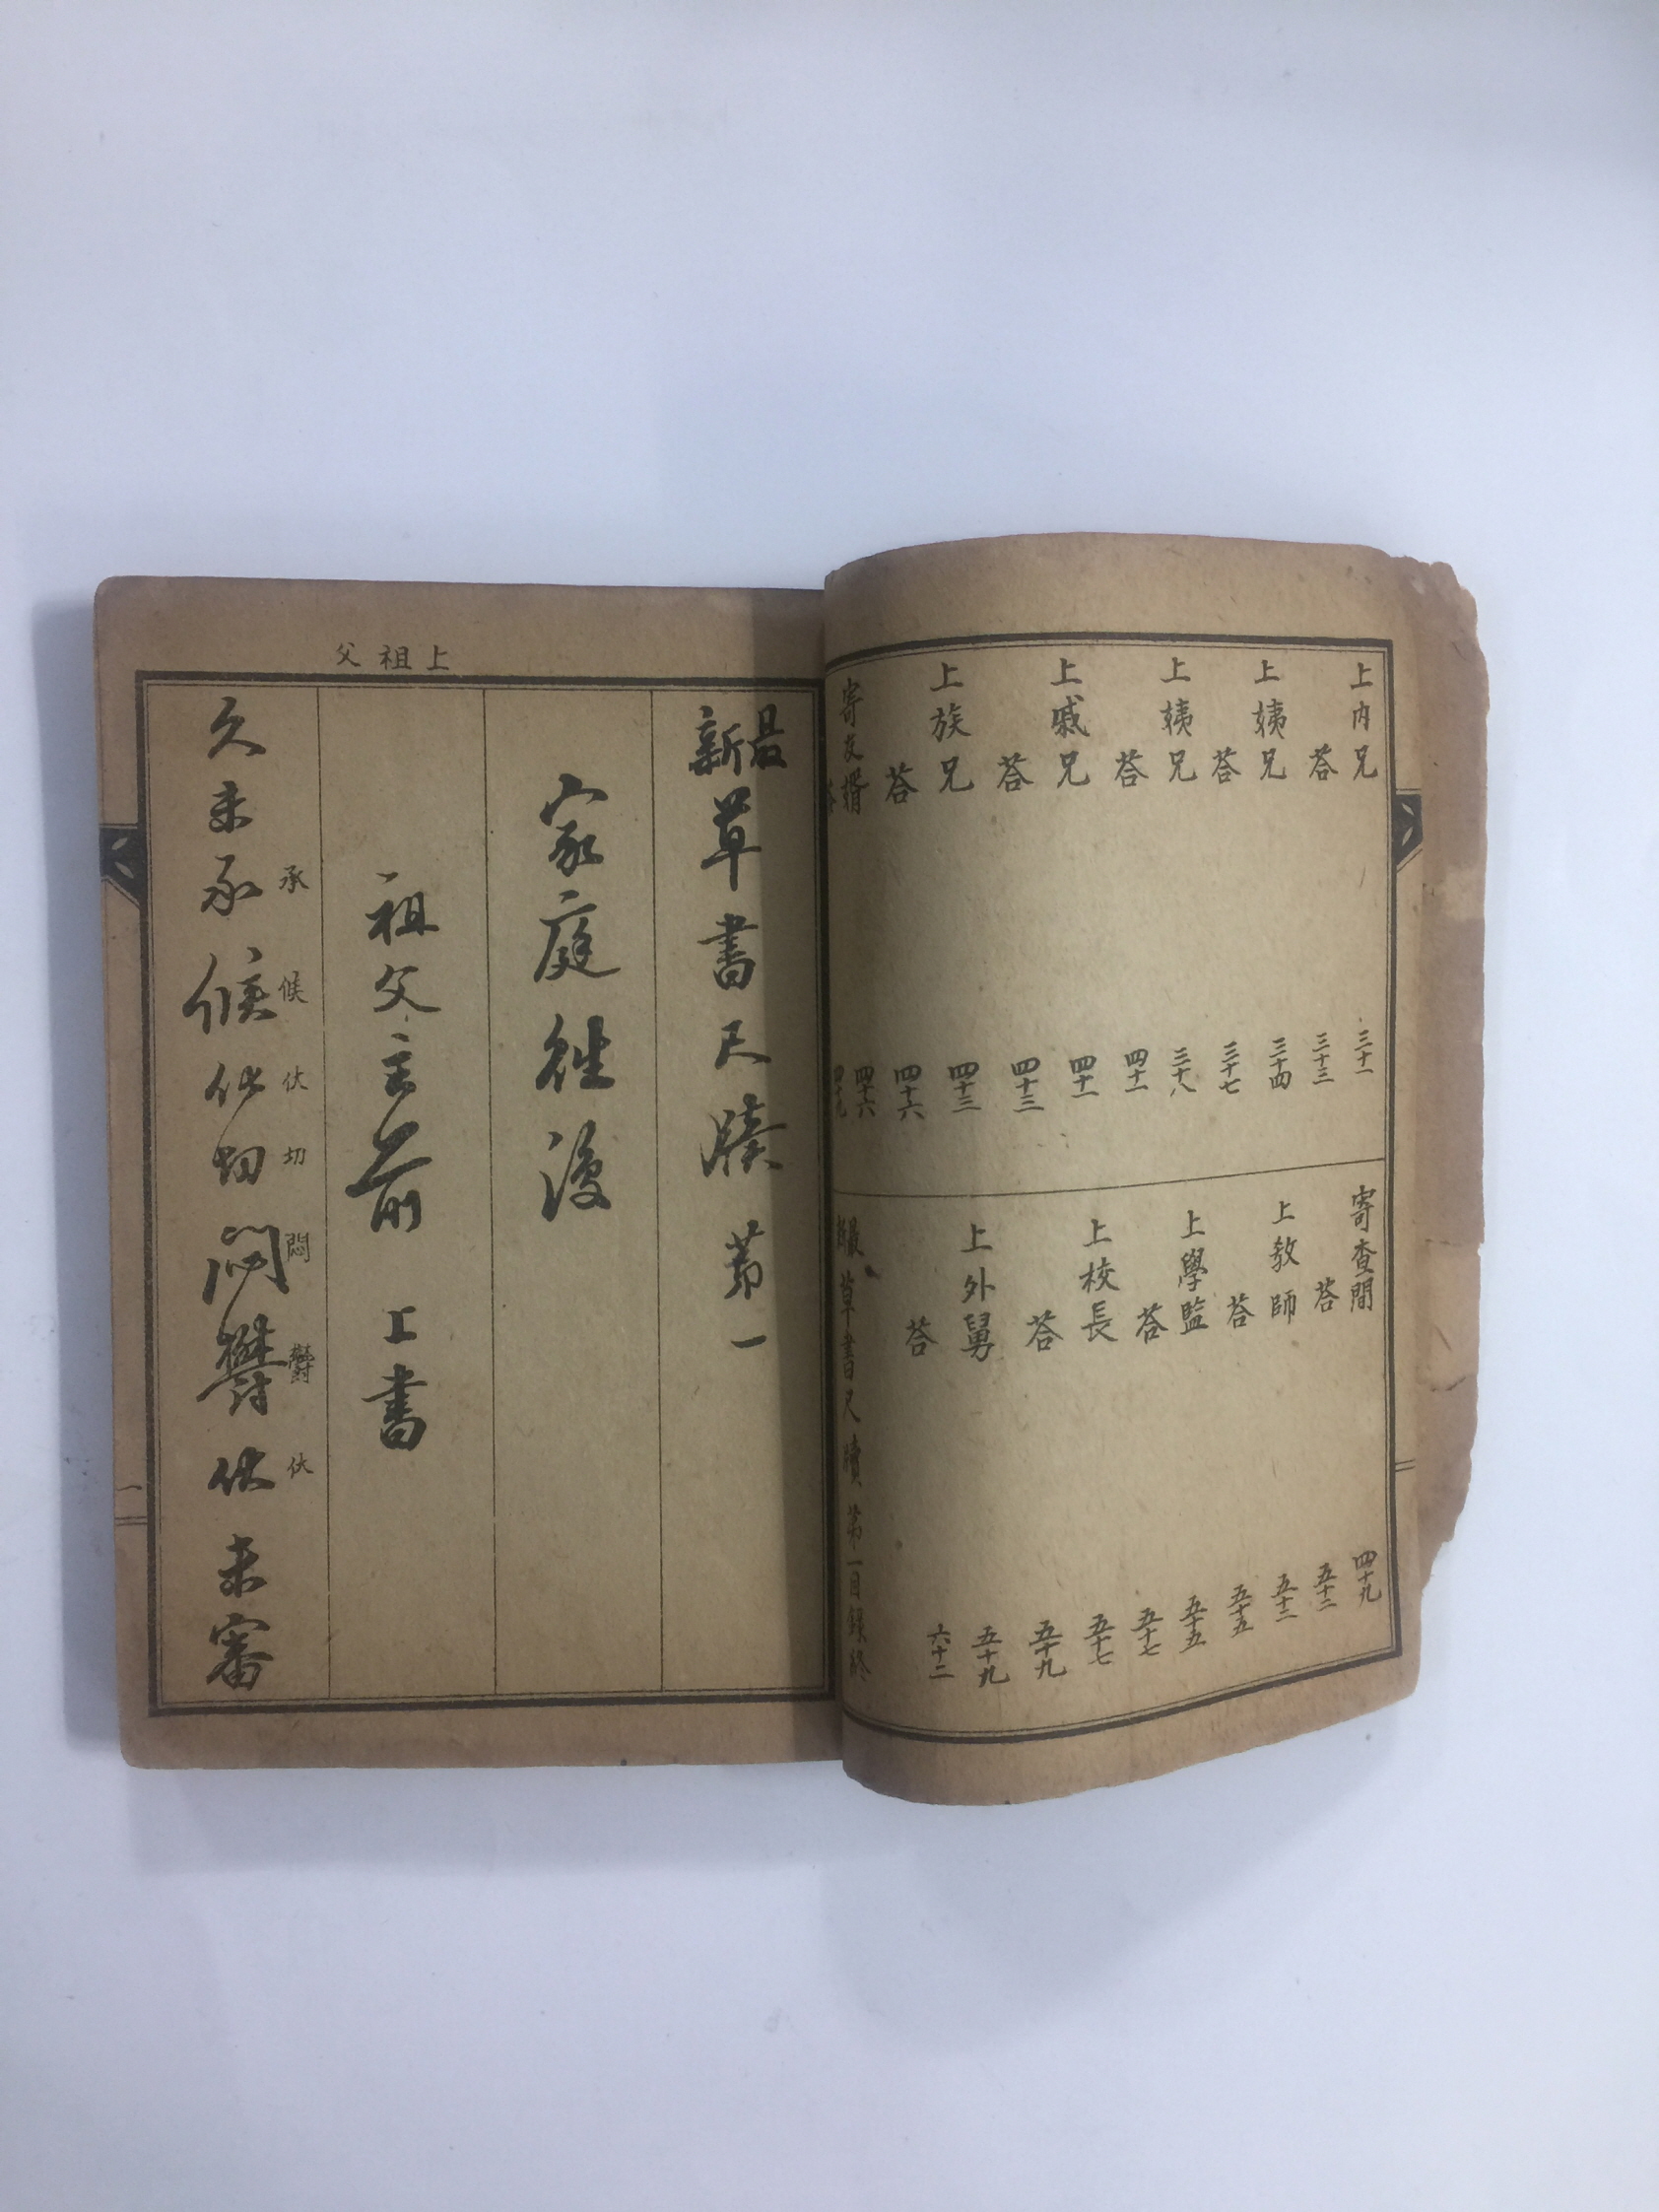 上內兄
三十一
答
三十三
上姨兄
三十四
答
三十七
上姨兄
三十八
答
四十一
上戚兄
四十一
答
四十三
上族兄
四十三
答
四十六
寄友壻
四十六
答
四十九
寄查間
四十九
答
五十二
上教師
五十三
答
五十五
上學監
五十五
答
五十七
上校長
五十七
答
五十九
上外舅
五十九
答
六十二
最新草書尺牘第一目錄終
上祖父
最新草書尺牘第一
家庭往復
祖父主前 上書
久未承候伏切悶鬱伏未審
承候伏切悶鬱伏
一